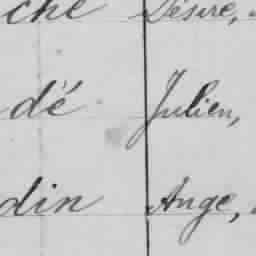 che Désiré,
dé Julien,
din Ange,